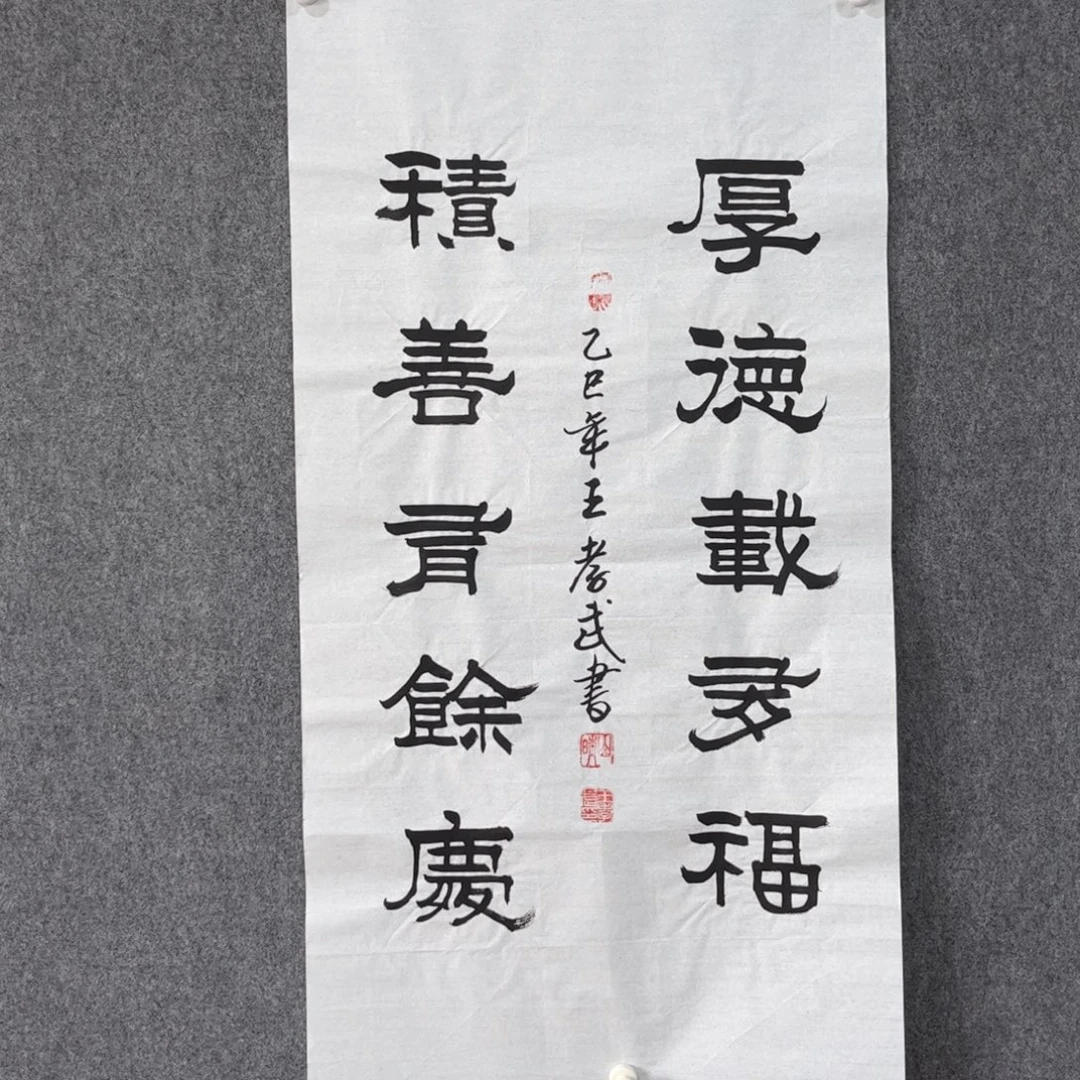 厚德載多福
積善有餘慶
乙巳年王孝武書